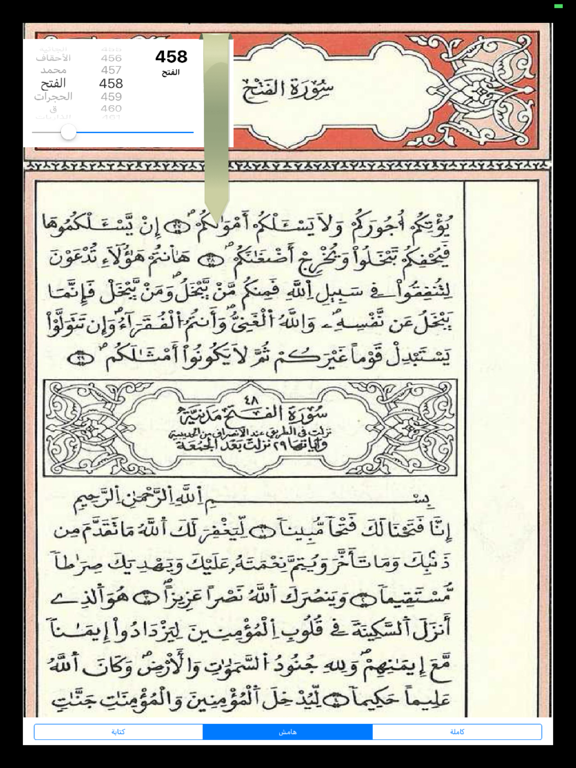 الأحقاف 456
محمد 457
الفتح 458
الحجرات 459
ق 460
458
الفتح
سُورَةُ الفَتْحِ
يُؤْتِكُمُۥٓ أُجُورَكُمْ وَلَا يَسْـَٔلْكُمُۥٓ أَمْوَٰلَكُمُۥٓ إِنْ يَّسْـَٔلْكُمُوهَا
فَيُحْفِكُمْ تَبْخَلُواْ وَيُخْرِجْ أَضْغَٰنَكُمْ هَآنتُمْ هَٰٓؤُلَآءِ تُدْعَوْنَ
لِتُنفِقُواْ فِے سَبِيلِ اِ۬للَّهِ فَمِنكُم مَّنْ يَّبْخَلُ وَمَنْ يَّبْخَلْ فَإِنَّمَا
يَبْخَلُ عَن نَّفْسِهِۦ وَاللَّهُ اُ۬لْغَنِيُّ وَأَنتُمُ اُ۬لْفُقَرَآءُ وَإِن تَتَوَلَّوْاْ
يَسْتَبْدِلْ قَوْماً غَيْرَكُمْ ثُمَّ لَا يَكُونُوٓاْ أَمْثَٰلَكُمْ
٤٨
سُورَةُ الفَتْحِ مَدَنِيَّةٌ
نزلت فى الطريق عند الانصراف من الحديبية
وآياتها ٢٩ نزلت بعد الجمعة
بِسْمِ اِ۬للَّهِ اِ۬لرَّحْمَٰنِ اِ۬لرَّحِيمِ
إِنَّا فَتَحْنَا لَكَ فَتْحاً مُّبِيناً لِّيَغْفِرَ لَكَ اَ۬للَّهُ مَا تَقَدَّمَ مِن
ذَنۢبِكَ وَمَا تَأَخَّرَ وَيُتِمَّ نِعْمَتَهُۥ عَلَيْكَ وَيَهْدِيَكَ صِرَٰطاً
مُّسْتَقِيماً وَيَنصُرَكَ اَ۬للَّهُ نَصْراً عَزِيزاً هُوَ اَ۬لذِےٓ
أَنزَلَ اَ۬لسَّكِينَةَ فِے قُلُوبِ اِ۬لْمُؤْمِنِينَ لِيَزْدَادُوٓاْ إِيمَٰناً
مَّعَ إِيمَٰنِهِمْ وَلِلهِ جُنُودُ اُ۬لسَّمَٰوَٰتِ وَالْأَرْضِ وَكَانَ اَ۬للَّهُ
عَلِيماً حَكِيماً لِّيُدْخِلَ اَ۬لْمُؤْمِنِينَ وَالْمُؤْمِنَٰتِ جَنَّٰتٍ
كاملة
هامش
كتابة